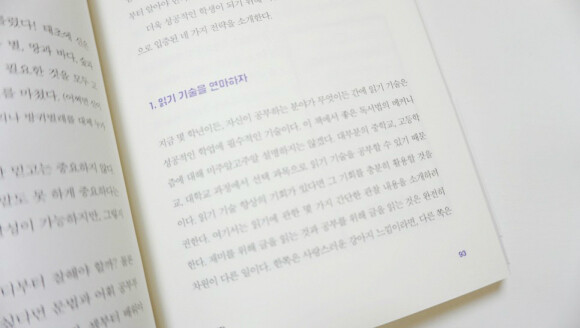 들렀다! 태초에 신은
별, 땅과 바다, 숲과
필요한 것을 모두 고
를 마쳤다. (어쩌면 신이
라고 믿고는 중요하지 않다
말도 못 하게 중요하다는
성이 가능하지만, 그렇지
더부터 침해야 할까? 물론
싶다면 문법과 어휘 공부부
부터 알아야 한
더욱 성공적인 학생이 되기 위해
으로 입증된 네 가지 전략을 소개한다.
1. 읽기 기술을 연마하자
지금 몇 학년이든, 자신이 공부하는 분야가 무엇이든 간에 읽기 기술은
성공적인 학업에 필수적인 기술이다. 이 책에서 좋은 독서법의 메커니
즘에 대해 미주알고주알 설명하지는 않겠다. 대부분의 중학교, 고등학
교, 대학교 과정에서 선택 과목으로 읽기 기술을 공부할 수 있기 때문
이다. 읽기 기술 향상의 기회가 있다면 그 기회를 충분히 활용할 것을
권한다. 여기서는 읽기에 관한 몇 가지 간단한 관찰 내용을 소개하려
한다. 재미를 위해 글을 읽는 것과 공부를 위해 글을 읽는 것은 완전히
차원이 다른 일이다. 한쪽은 사랑스러운 강아지 느낌이라면, 다른 쪽은
93